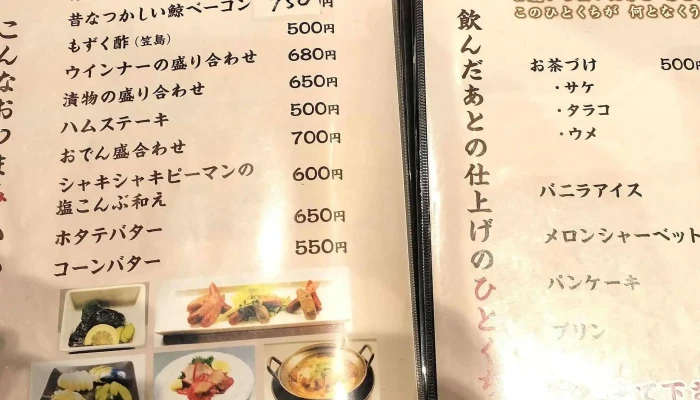 こんなおつまみ
昔なつかしい鯨ベーコン 750円
もずく酢（笠島） 500円
ウインナーの盛り合わせ 680円
漬物の盛り合わせ 650円
ハムステーキ 500円
おでん盛合わせ 700円
シャキシャキピーマンの
塩こんぶ和え 600円
ホタテバター 650円
コーンバター 550円
このひとくちが 何となくう
飲んだあとの仕上げのひとくち
お茶づけ 500円
・サケ
・タラコ
・ウメ
バニラアイス
メロンシャーベット
パンケーキ
プリン